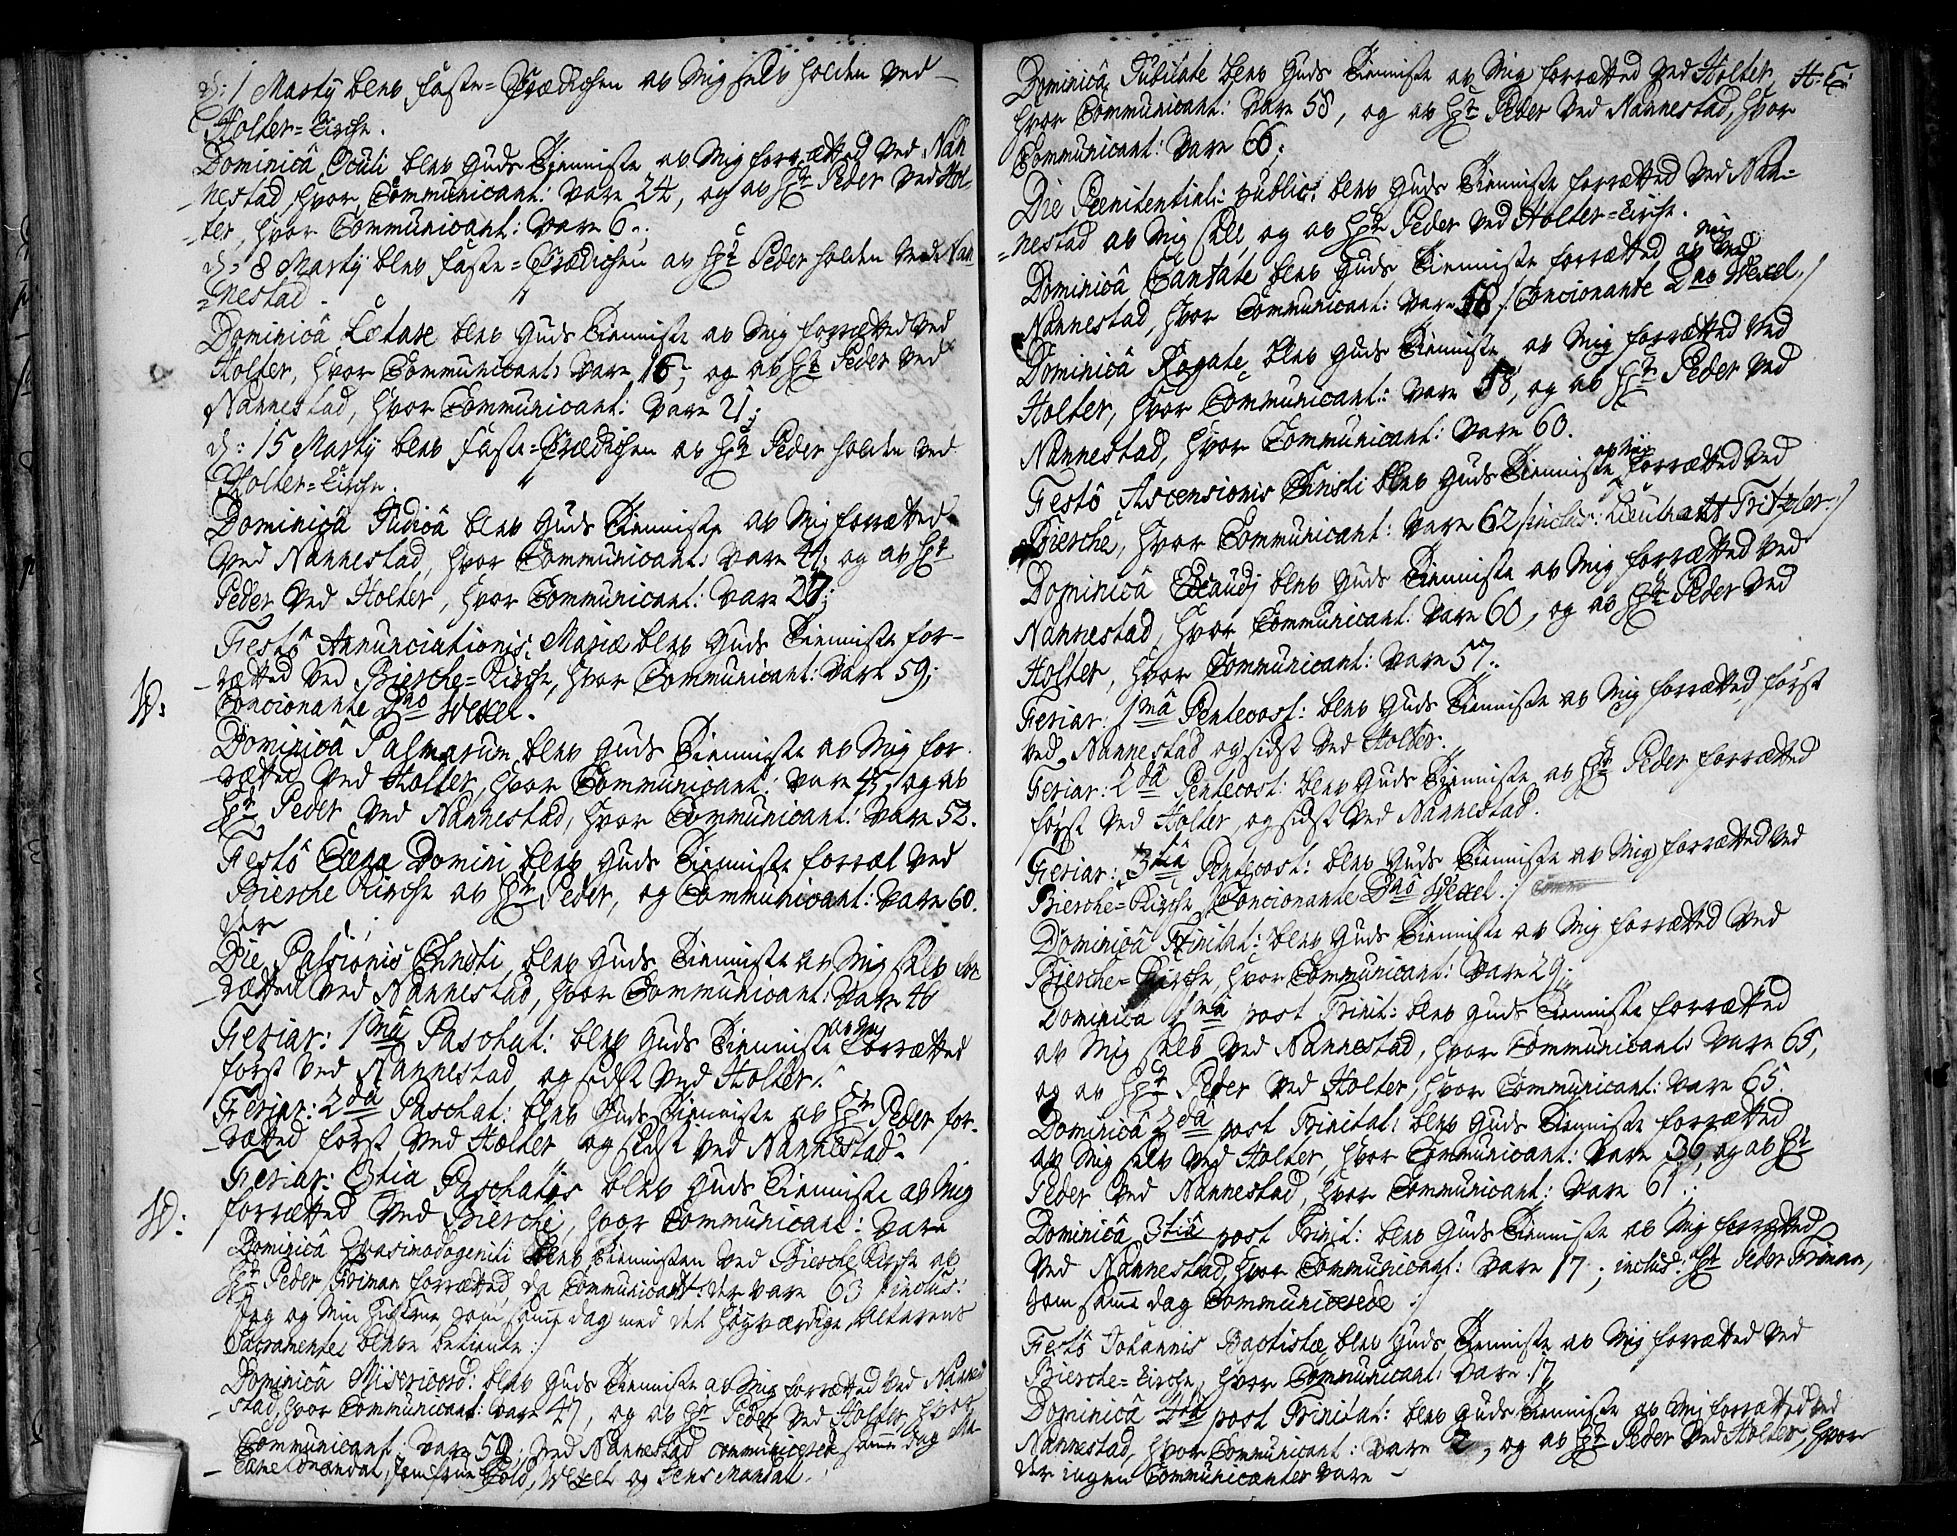 d: 1 Martÿ blev Faste-Prædichen av Mig selv holden ved
Holter-Kirche.
Dominicâ Oculi blev Guds Tienniste av Mig forrætted ved Nan
nestad, hvor Communicant: vare 24, og av Hr Peder ved Hol-
ter, hvor Communicant: vare 6.
d: 8 Martÿ blev Faste-Prædichen av Hr Peder holden ved Nan
=nestad.
Dominicâ Lætare blev Guds Tienniste av Mig forrætted ved
Holter, hvor Communicant: vare 16, og av Hr Peder ved
Nannestad, hvor Communicant: vare 21;
d: 15 Martÿ blev Faste-Prædichen av Hr Peder holden ved
Holter-Kirche.
Dominicâ Judicâ blev Guds Tienniste av Mig forrætted
ved Nannestad, hvor Communicant: vare 44; og av Hr
Peder ved Holter, hvor Communicant: vare 27;
Festô Annunciationis Mariæ blev Guds Tienniste for-
rætted ved Bierche-Kirche, hvor Communicant: vare 59;
Concionante Dno Wexel.
Dominicâ Palmarum blev Guds Tienniste av Mig for-
rætted ved Holter, hvor Communicant: vare 45, og av
Hr Peder ved Nannestad, hvor Communicant: vare 52.
Festô Cænæ Domini blev Guds Tienniste forræt ved
Bierche Kirche av Hr Peder, og Communicant: vare 60.
der
Die Passionis Christi blev Guds Tienniste av Mig selv for
rætted ved Nannestad, hvor Communicant: vare 46
Feriar: 1mâ Paschat: blev Guds Tienniste av Mig forrætted
først ved Nannestad og sidst ved Holter.
Feriar: 2dâ Paschat: blev Guds Tienniste av Hr Peder for-
rætted først ved Holter og sidst ved Nannestad.
Feriar: 3tia Paschatos blev Guds Tienniste av Mig
forrætted ved Bierche, hvor Communicant: vare
Dominicâ Qvasimodogeniti blev Tiennisten ved Bierche Kirche av
Hr Peder Friman forrætted, da Communicant: der vare 63 /: inclus:
Jeg og Min Hustrue, som samme dag med det Høyværdige Alterens
Sacramente bleve betiente :/
Dominicâ Misericord: blev Guds Tienniste av Mig forrætted ved Nanne
stad, hvor Communicant: vare 47, og av Hr Peder ved Holter, hvor
Communicant: vare 59; ved Nannestad communicerede samme dag Ma-
Wexel og Jens Mandal.
Dominicâ Jubilate blev Guds Tienniste av Mig forrætted ved Holter,
hvor Communicant: vare 58, og av Hr Peder ved Nannestad, hvor
Communicant: vare 66.
Die Pœnitential: public: blev Guds Tienniste forrætted ved Nan=
=nestad av Mig selv, og av Hr Peder ved Holter-Kirche.
Dominicâ Cantate blev Guds Tienniste forrætted av Mig ved
Nannestad, hvor Communicant: vare 58 /: Concionante Dno Wexel :/
Dominicâ Rogate blev Guds Tienniste av Mig forrætted ved
Holter, hvor Communicant: vare 58, og av Hr Peder ved
Nannestad, hvor Communicant: vare 60.
Festô Ascensionis Christi blev Guds Tienniste av Mig forrætted ved
Bierche, hvor Communicant: vare 62 /: inclus: Lieutnantt Fritzler :/
Dominicâ Exaudj blev Guds Tienniste av Mig forrætted ved
Nannestad, hvor Communicant: vare 60, og av Hr Peder ved
Holter, hvor Communicant: vare 57.
Feriar: 1mâ Pentecost: blev Guds Tienniste av Mig forrætted, først
ved Nannestad og sidst ved Holter.
Feriar: 2dâ Pentecost: blev Guds Tienniste av Hr Peder forrætted
først ved Holter, og sidst ved Nannestad.
Feriar: 3tiâ Pentecost: blev Guds Tienniste av Mig forrætted ved
Bierche-Kirche /: Concionante Dno Wexel :/
Dominicâ Trinitat: blev Guds Tienniste av Mig forrætted ved
Bierche-Kirche, hvor Communicant: vare 29;
Dominicâ 1mâ post Trinit: blev Guds Tienniste forrætted
av Mig selv ved Nannestad, hvor Communicant: vare 65,
og av Hr Peder ved Holter, hvor Communicant: vare 65.
Dominicâ 2dâ post Trinitat: blev Guds Tienniste forrætted
av Mig selv ved Holter, hvor Communicant: vare 36, og av Hr
Peder ved Nannestad, hvor Communicant: vare 61.
Dominicâ 3tiâ post Trinit: blev Guds Tienniste av Mig forrætted
ved Nannestad, hvor Communicant: vare 17; inclus: Hr Peder Friman,
som samme dag Communicerede :/
Festô Johannis Baptistæ blev Guds Tienniste av Mig forrætted ved
Bierche-Kirche, hvor Communicant: vare 17
Dominicâ 4ta post Trinitat: blev Guds Tienniste av Mig forrætted ved
Nannestad, hvor Communicant: vare 2, og av Hr Peder ved Holter, hvor
der ingen Communicanter vare